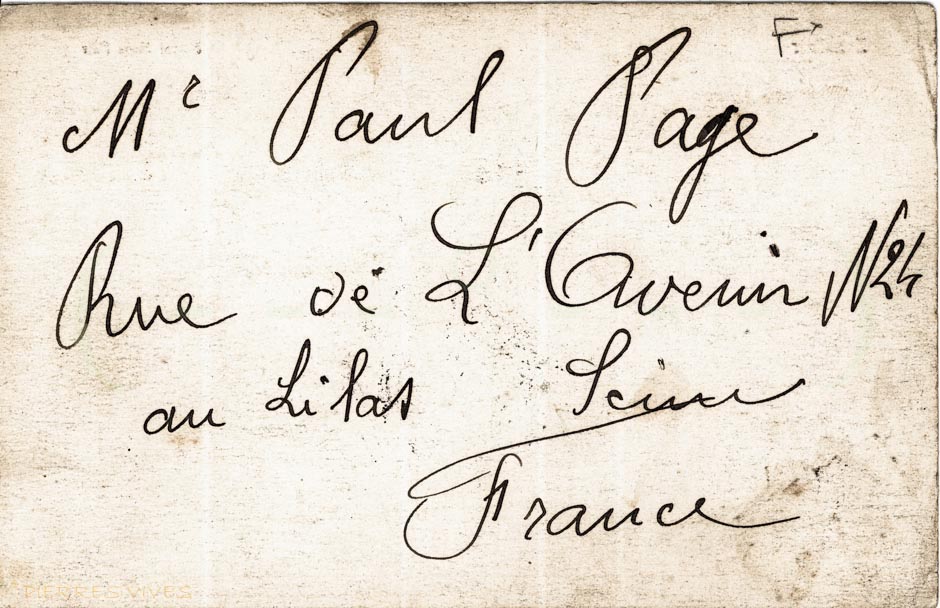 F
Mr Paul Page
Rue de L'Avenir N24
au Lilas Seine
France
PIERRESVIVES